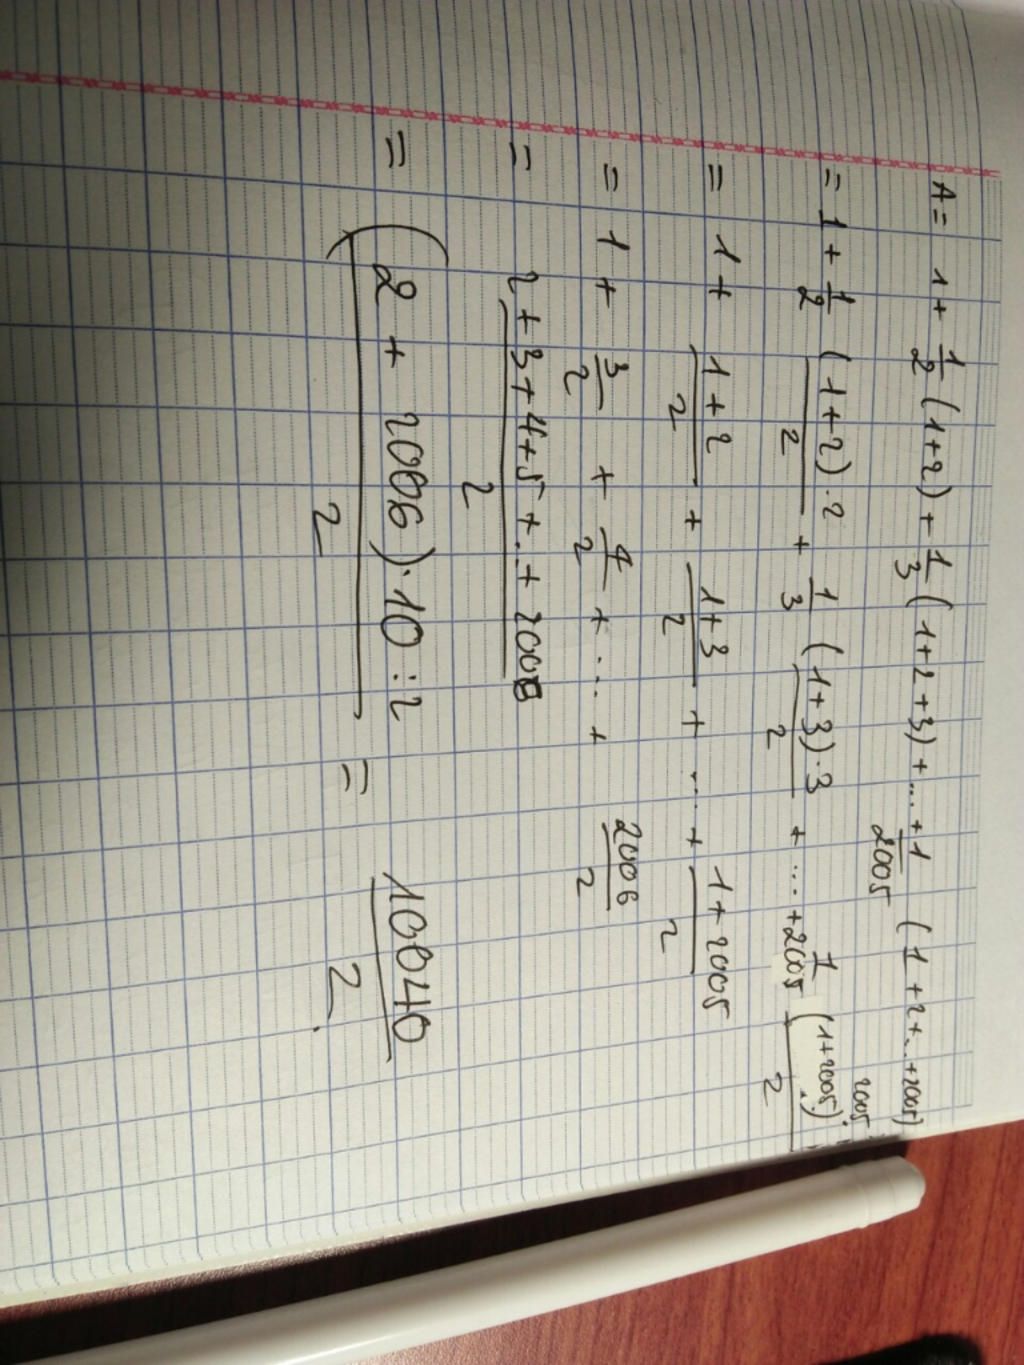 A = 1 + 1/2 (1+2) + 1/3 (1+2+3) + ... + 1/2005 (1+2+..+2005)
= 1 + 1/2 (1+2).2/2 + 1/3 (1+3).3/2 + ... + 1/2005 (1+2005).2005/2
= 1 + 1+2/2 + 1+3/2 + ... + 1+2005/2
= 1 + 3/2 + 4/2 + ... + 2006/2
= 2+3+4+5+..+2006/2
= (2 + 2006).10:2/2 = 10040/2.